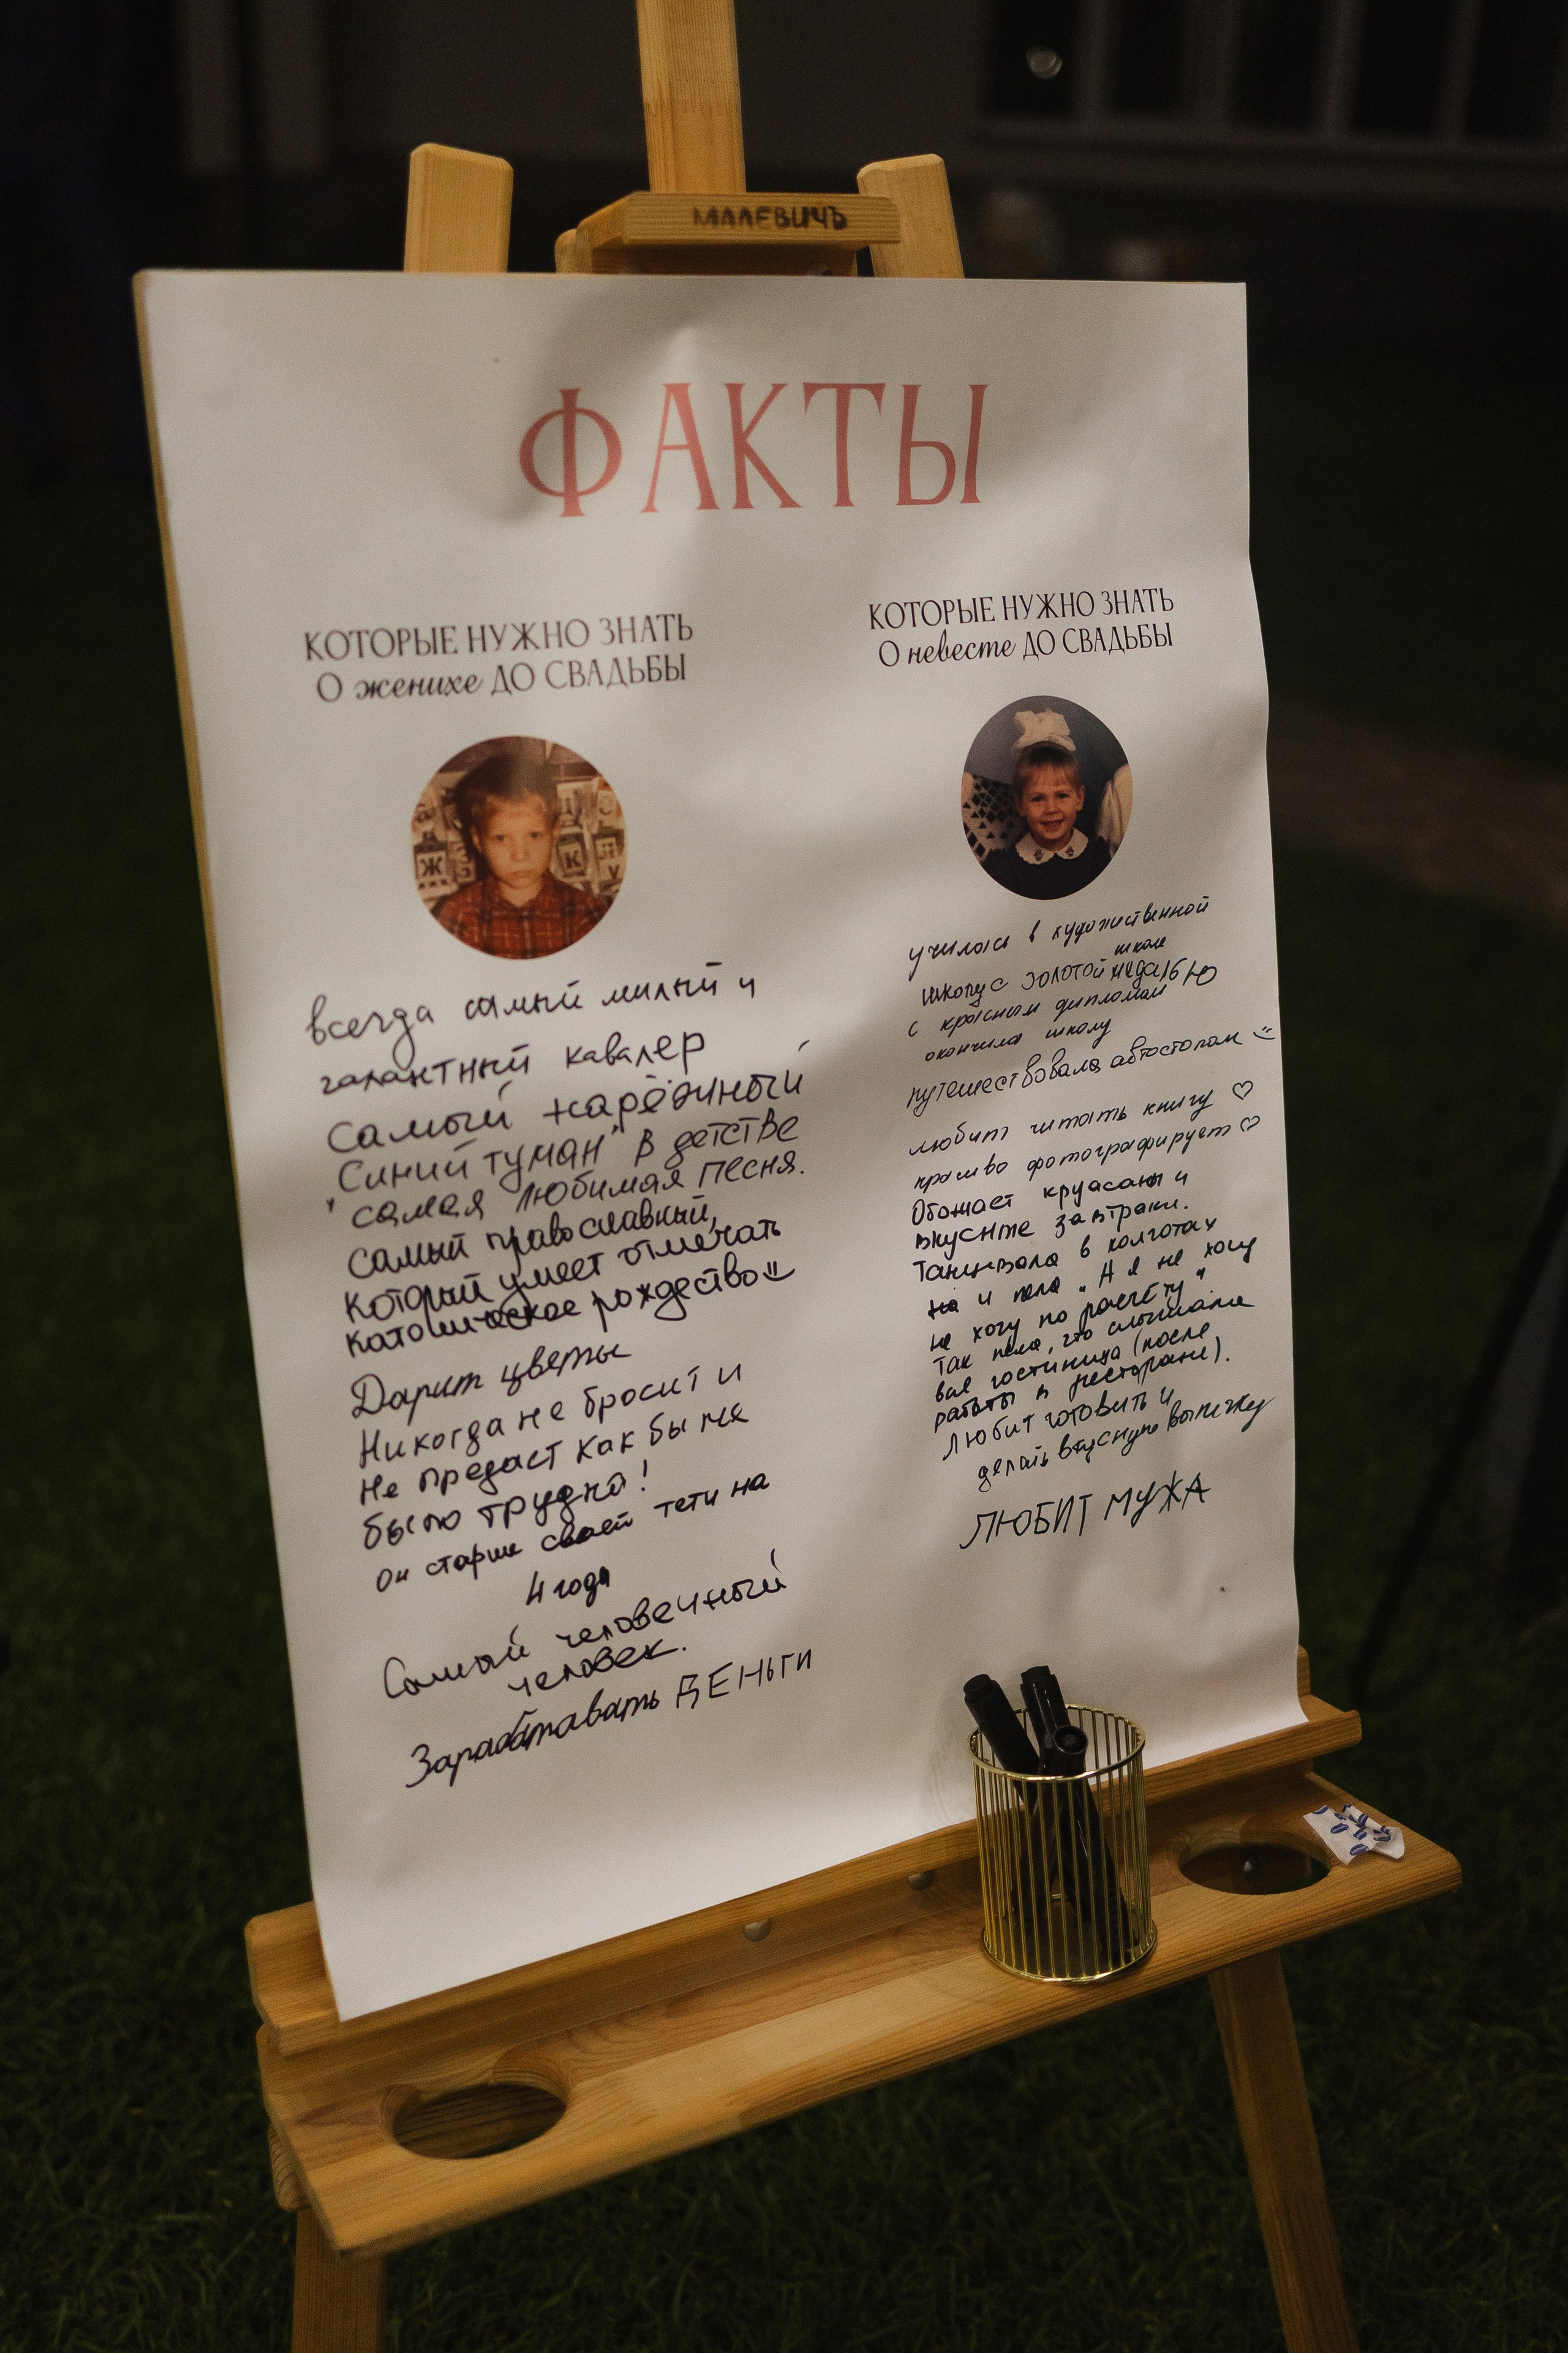 МАЛЕВИЧЪ
ФАКТЫ
КОТОРЫЕ НУЖНО ЗНАТЬ
О женихе ДО СВАДЬБЫ
Ж
К
всегда самый милый и
галантный кавалер
Самый
"Синий туман" в детстве
самая любимая песня.
самый православный,
который умеет отмечать
католическое рождество
Дарит цветы
Никогда не бросит и
не предаст как бы не
было трудно!
он старше своей тети на
4 года
Самый человечный
человек.
Зарабатывать ДЕНЬГИ
КОТОРЫЕ НУЖНО ЗНАТЬ
О невесте ДО СВАДЬБЫ
училась в художественной
школе
школу с золотой медалью
с красным дипломом
окончила школу
путешествовала автостопом
любит читать книгу ♡
красиво фотографирует ♡
Обожает круасаны и
вкусные завтраки.
Танцевала в колготах
и пела „А я не хочу
не хочу по расчёту"
Так пела, что слышала
вся гостиница (после
работы в ресторане).
Любит готовить и
делать вкусную выпечку
ЛЮБИТ МУЖА